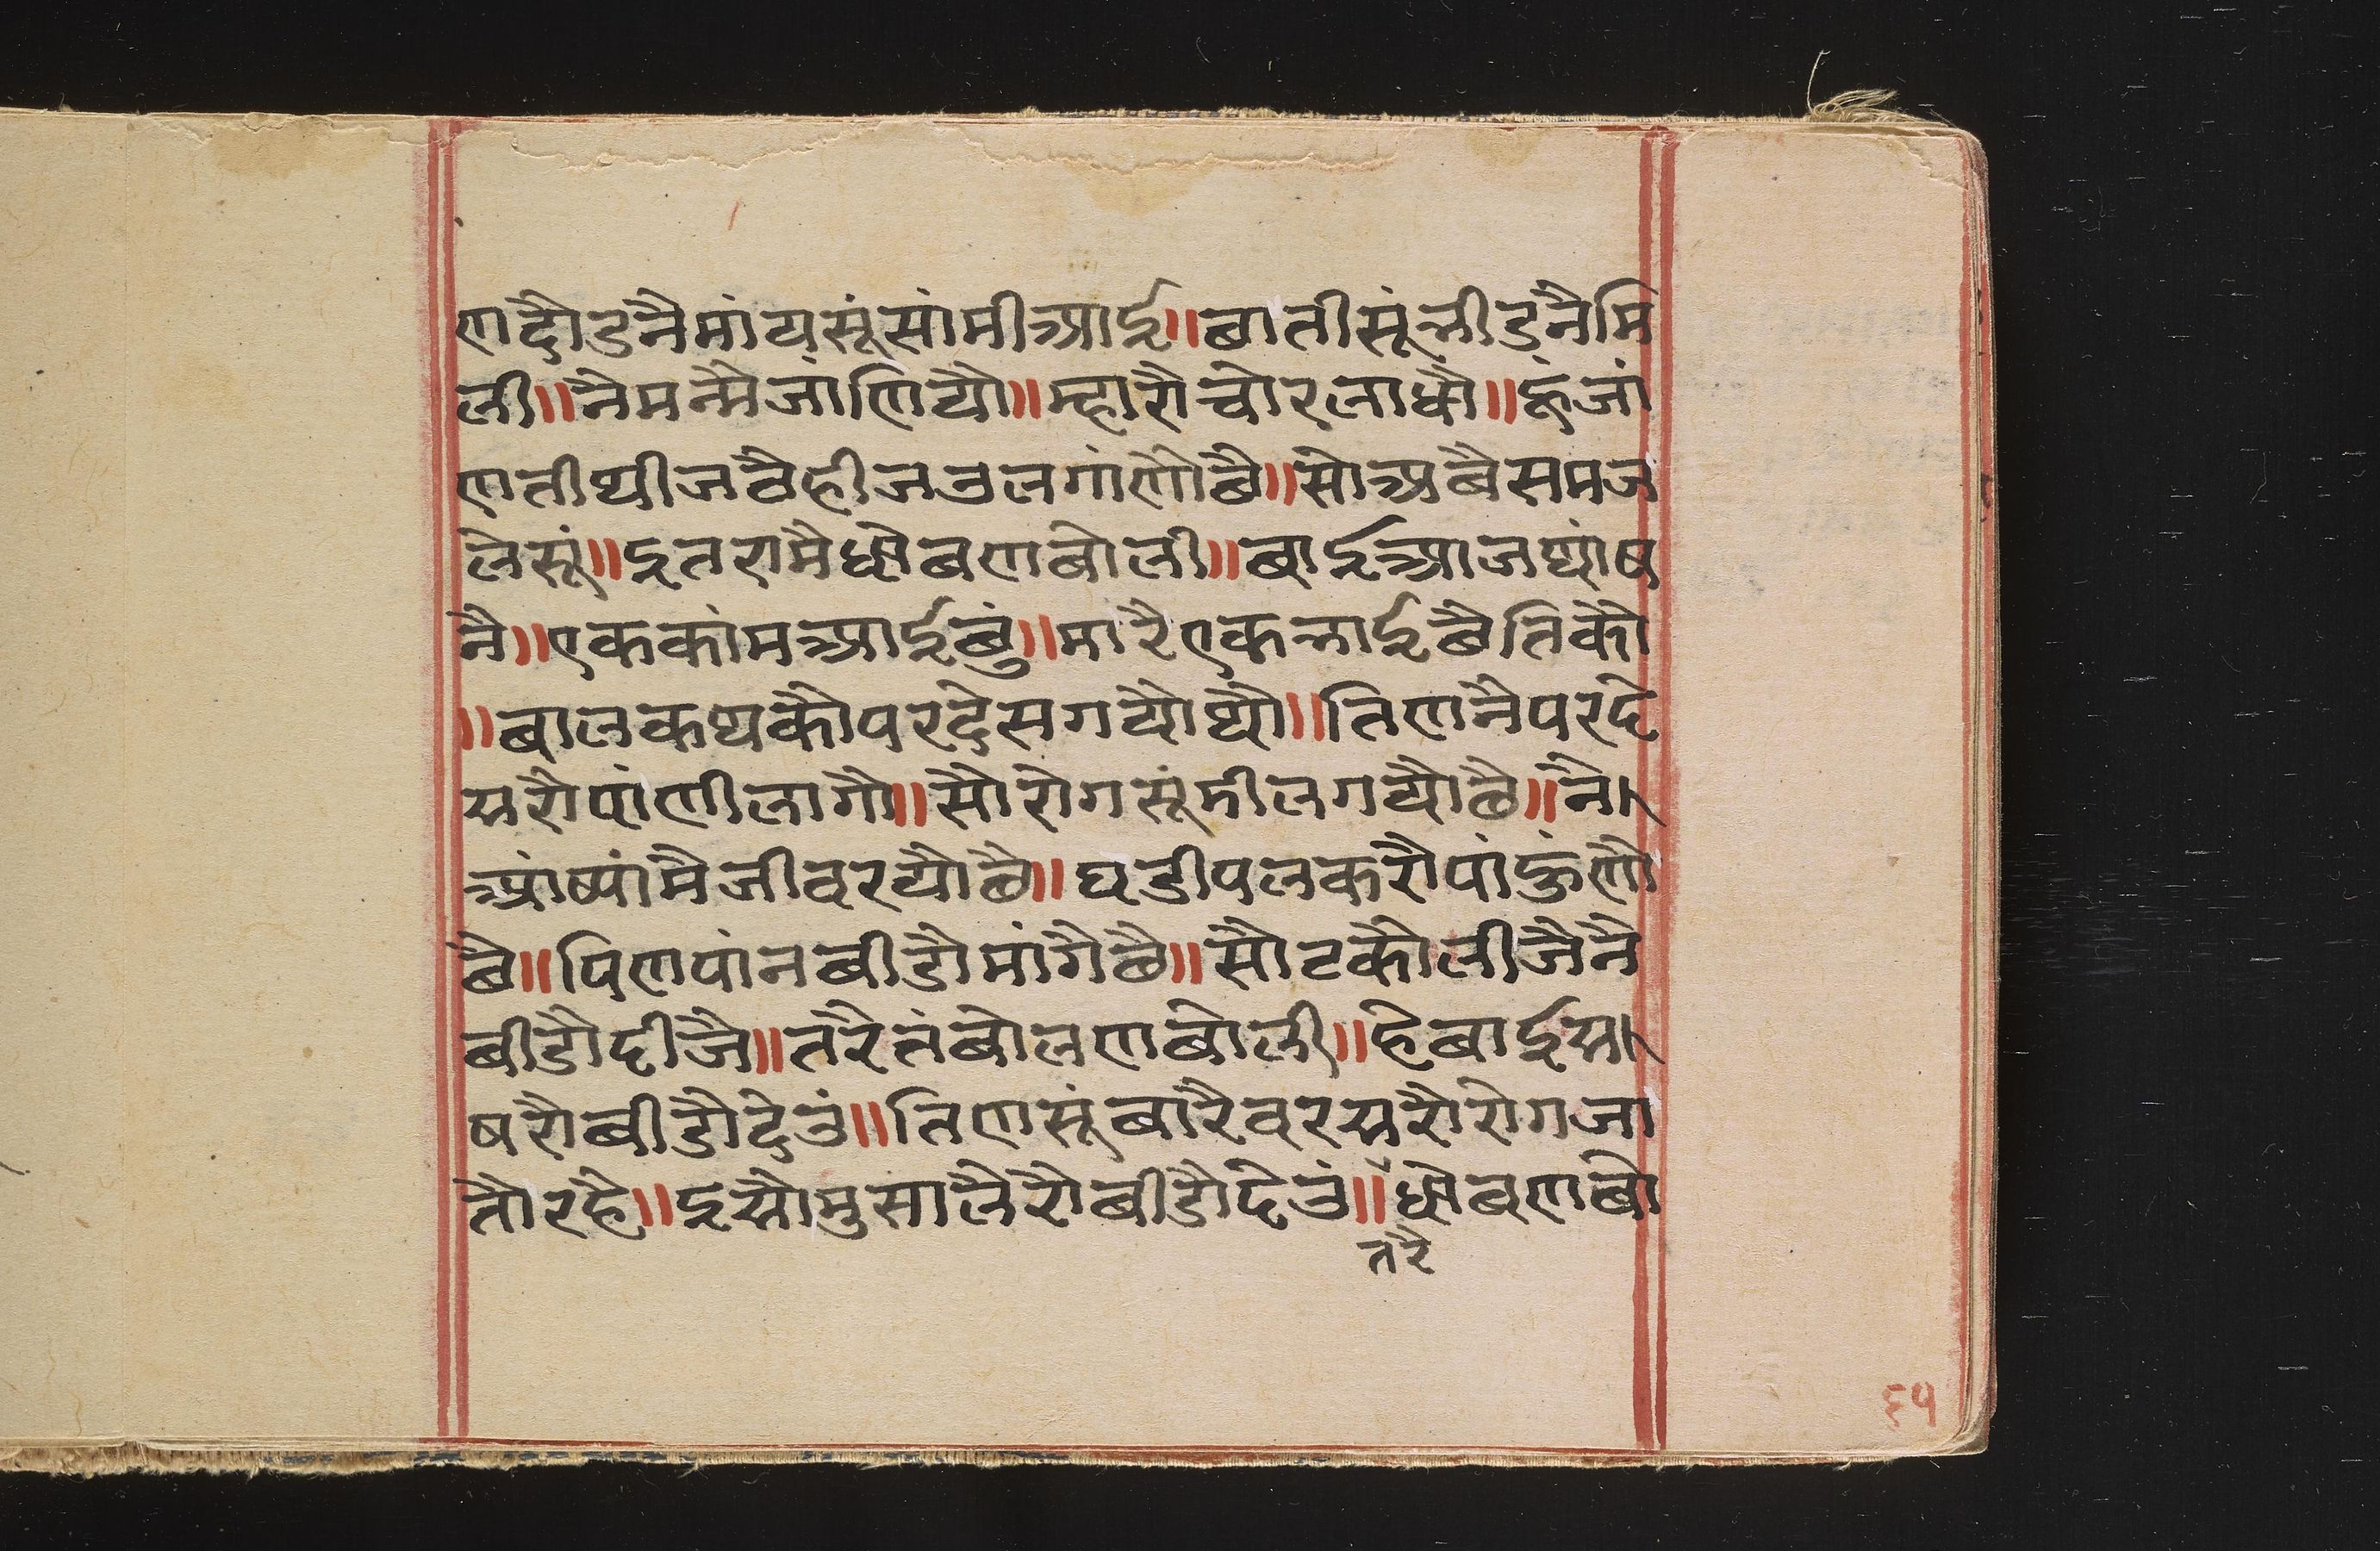 ण दौडनै मांय सूं सांमी आई॥ बाती सूं भीड नै मि
ली॥ नै मन्मै जांणियौ॥ म्हारौ चोर लाधौ॥ हूं जां
णती थी जठै ही जउल गांणौ छै॥ सो अबै समज
लेसूं॥ इतरामै धोबण बोली॥ बाई आज थां ष
नै॥ एक कांम आई छुं॥ मारै एक भाई छै तिकौ
॥ बालक थकौ परदेस गयौ थौ॥ तिण नै परदे
सरौ पांणी लागौ॥ सौ रोग सूं मील गयौ छै॥ नै।
आंष्यां मै जीव रयौ छै॥ घडी पलक रौ पांहुंणौ
छै॥ पिण पांन बीडौ मांगै छै॥ सौ टकौ लीजै नै
बीडौ दीजै॥ तरै तंबोलण बोली॥ हे बाई स।
षरौ बीडौ देउं॥ तिण सूं बारै वरसरौ रोग जा
तौ रहै॥ इसौ मुसालै रौ बीडौ देउं॥ धोबण बो
तरै
६१